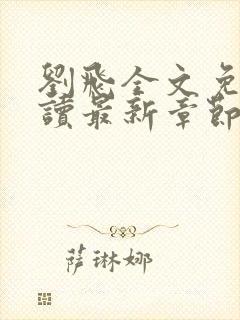 劉飛全文免
讀最新章節
萨琳娜